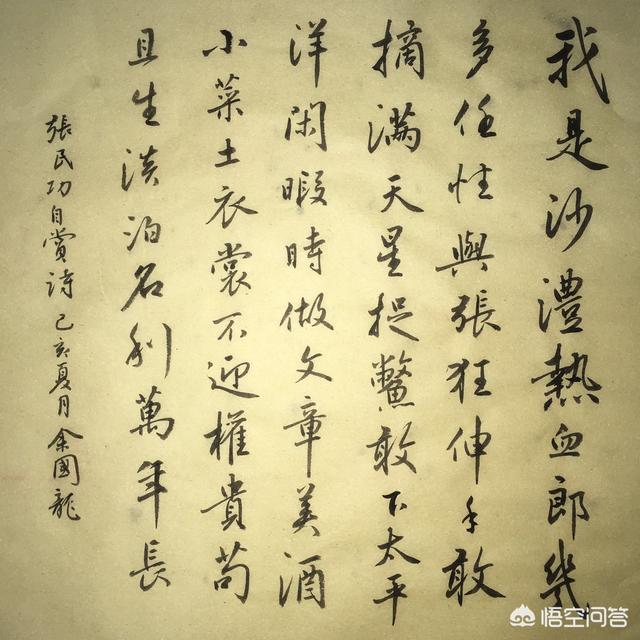 我是沙澧熱血郎幾
多任性與張狂伸手敢
摘滿天星捉鱉敢下太平
洋閑暇時做文章美酒
小菜土衣裳不迎權貴苟
且生淡泊名利萬年長
張民功自賞诗己亥夏月余國龍
悟空问答